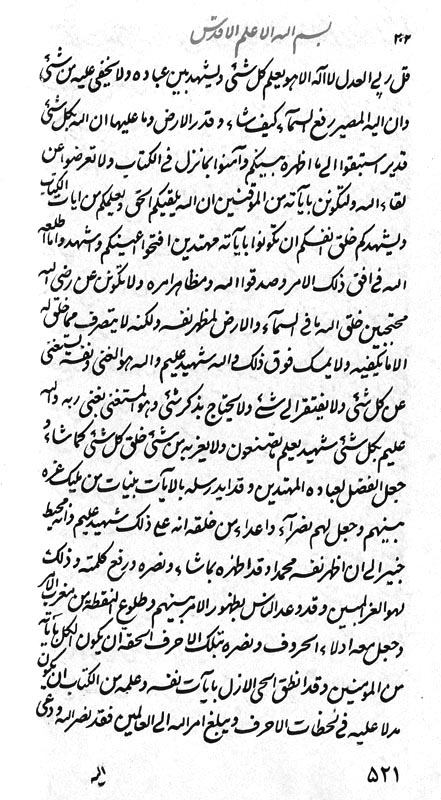 ۴۰۲
بسم الله الاعلم الاقدس
قل ربی العدل لا اله الا هو یعلم کل شئی و یشهد بین عباده و لا یخفی علیه من شئی
وان الیه المصیر رفع السمآء کیف شاء و قدر الارض و ما علیها ان الله بکل شئی
قدیر استبقوا الی ما اظهره بینکم و آمنوا بما نزل فی الکتاب و لا تعرضوا عن
لقاء الله ولتکونن بآیاته من الموقنین ان الله یلقیکم الحق و یعلمکم من ایات الکتاب
و یشهدکم خلق انفسکم ان تکونوا بآیاته مهتدین افتحوا اعینکم و شهدوا ما اطلعه
الله فی افق ذلک الامر و صدقوا الله و مظاهر امره و لا تکونن عن رضی الله
محتجبین خلق الله ما فی السمآء و الارض لمظهر نفسه ولکنه لا یتصرف مما خلق له
الا ما یکفیه و لا یمسک فوق ذلک والله شهید علیم والله هو الغنی و نفسه یستغنی
عن کل شئی و لا یفتقر الی شئی و لا یحتاج بذکر شئی و هو المستغنی بغنی ربه والله
علیم بکل شئی شهید یعلم ما یصنعون و لا یعزب من شئی خلق کل شئی کما شاء و
جعل الفضل لعباده المهتدین و قد اید رسله بالآیات بنیات من ملیک عزه
مبینهم و جعل لهم نصرآء و اعداء من خلقه انه علی ذلک شهید علیم و انه محیط
خبیر الی ان اظهر نفسه محمدا و قد اظهره کما شاء و نصره و رفع کلمته و ذلک
لهو العز المبین و قد وعد الناس بظهور الامر بینهم و طلوع النقطة من مغرب الامر
و جعل معه ادلاء الحروف و نصره بتلک الاحرف الحقه ان یکون الکل بآیاته
من المؤمنین و قد انطق الحی الازل بآیات نفسه و علمه من الکتاب ان یکون
مدلا علیه فی لحظات الاحرف و یبلغ امر الله الی العالمین فقد نصر الله و دعی
۵۲۱
الیه